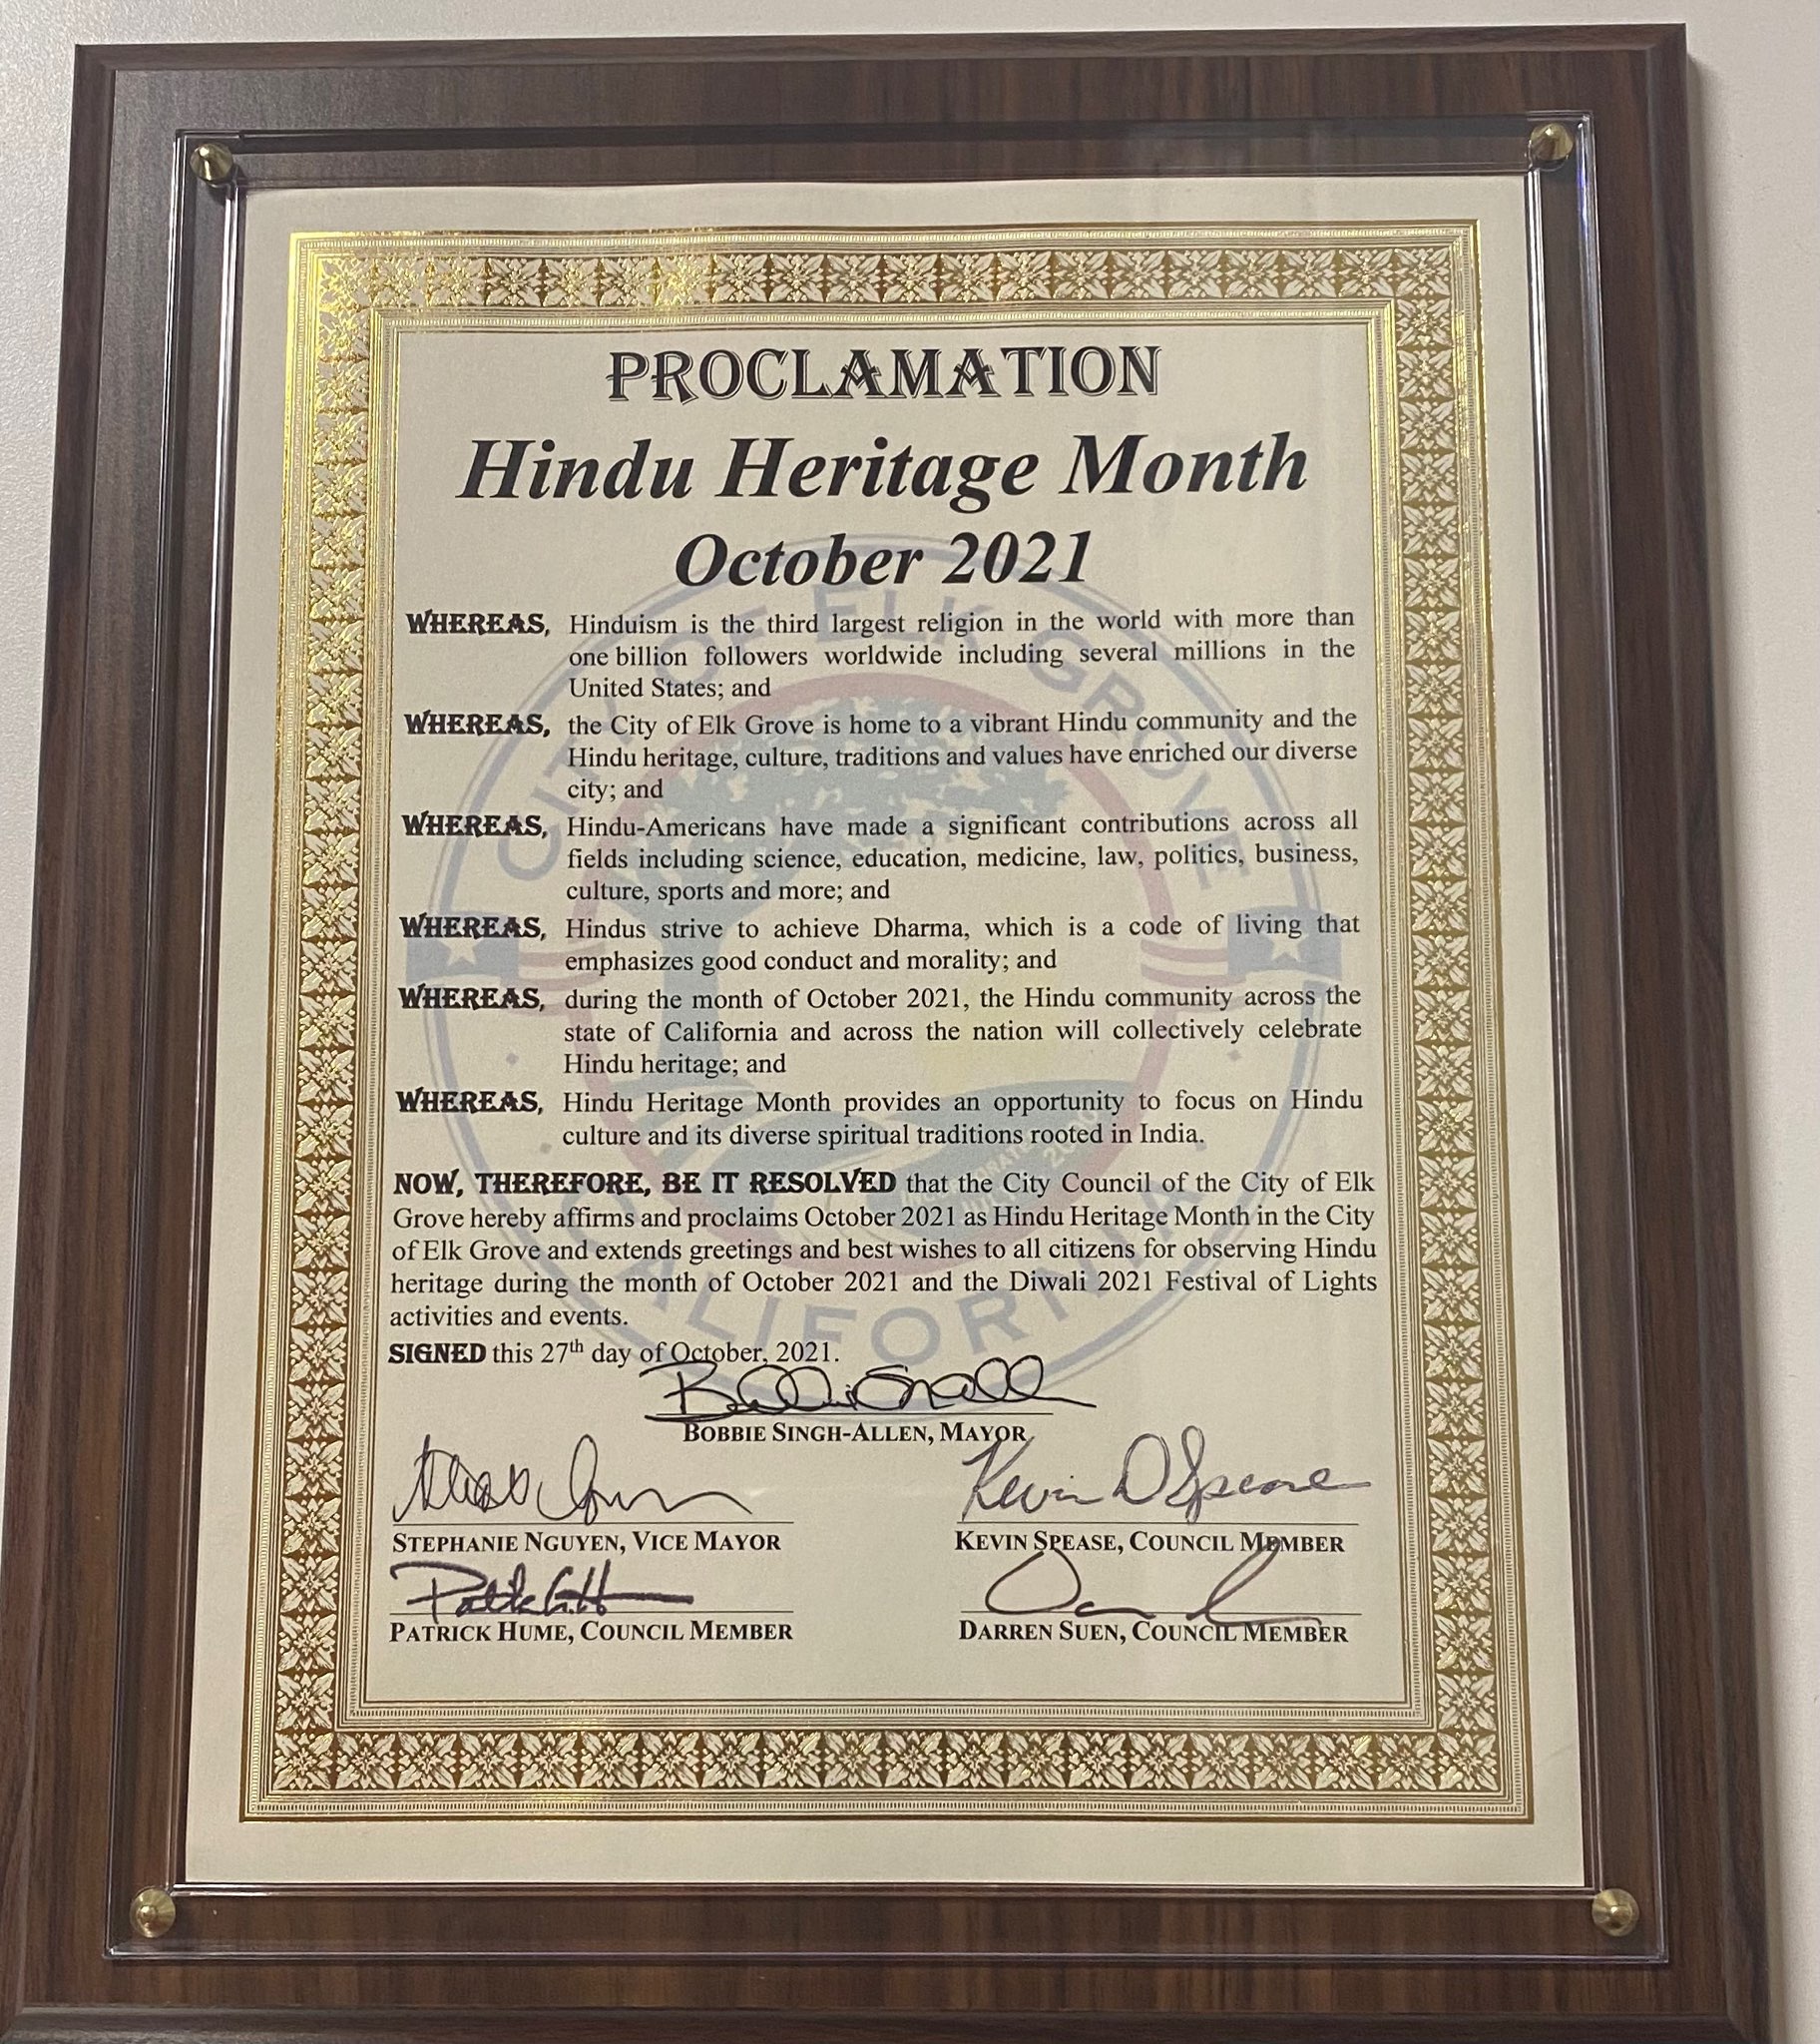 PROCLAMATION
Hindu Heritage Month
October 2021
WHEREAS, Hinduism is the third largest religion in the world with more than
one billion followers worldwide including several millions in the
United States; and
WHEREAS, the City of Elk Grove is home to a vibrant Hindu community and the
Hindu heritage, culture, traditions and values have enriched our diverse
city; and
WHEREAS, Hindu-Americans have made a significant contributions across all
fields including science, education, medicine, law, politics, business,
culture, sports and more; and
WHEREAS, Hindus strive to achieve Dharma, which is a code of living that
emphasizes good conduct and morality; and
WHEREAS, during the month of October 2021, the Hindu community across the
state of California and across the nation will collectively celebrate
Hindu heritage; and
WHEREAS, Hindu Heritage Month provides an opportunity to focus on Hindu
culture and its diverse spiritual traditions rooted in India.
NOW, THEREFORE, BE IT RESOLVED that the City Council of the City of Elk
Grove hereby affirms and proclaims October 2021 as Hindu Heritage Month in the City
of Elk Grove and extends greetings and best wishes to all citizens for observing Hindu
heritage during the month of October 2021 and the Diwali 2021 Festival of Lights
activities and events.
SIGNED this 27th day of October, 2021.
BOBBIE SINGH-ALLEN, MAYOR
Kevin D Spease
STEPHANIE NGUYEN, VICE MAYOR
KEVIN SPEASE, COUNCIL MEMBER
PATRICK HUME, COUNCIL MEMBER
DARREN SUEN, COUNCIL MEMBER
CITY OF ELK GROVE
CALIFORNIA